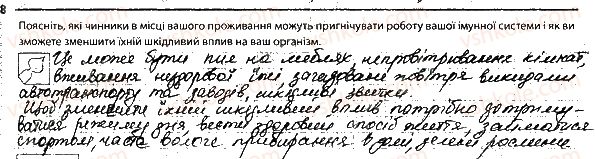 8
Поясніть, які чинники в місці вашого проживання можуть пригнічувати роботу вашої імунної системи і як ви
зможете зменшити їхній шкідливий вплив на ваш організм.
Це може бути пил на меблях, непровітрювання кімнат,
вживання нездорової їжі, загазоване повітря викидами
автотранспорту та заводів, шкідливі звички.
Щоб зменшити їхній шкідливий вплив потрібно дотриму-
ватися режиму дня, вести здоровий спосіб життя, займатися
спортом, часте вологе прибирання в домі, зелені рослини